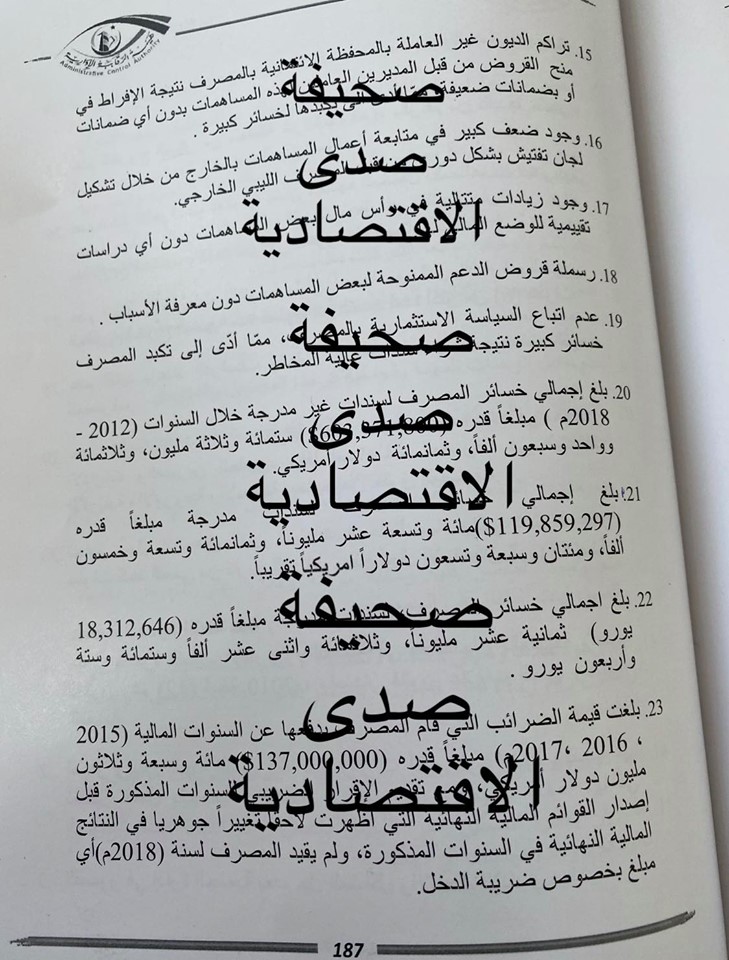 هيئة الرقابة الإدارية
Administrative Control Authority
15. تراكم الديون غير العاملة بالمحفظة الإئتمانية بالمصرف نتيجة الإفراط في
منح القروض من قبل المديرين العاملين بهذه المساهمات بدون أي ضمانات
أو بضمانات ضعيفة، ممّا أدى إلى تكبدها لخسائر كبيرة .
16. وجود ضعف كبير في متابعة أعمال المساهمات بالخارج من خلال تشكيل
لجان تفتيش بشكل دوري من قبل المصرف الليبي الخارجي.
17. وجود زيادات متتالية في رأس مال بعض المساهمات دون أي دراسات
تقييمية للوضع المالي
18. رسملة قروض الدعم الممنوحة لبعض المساهمات دون معرفة الأسباب .
19. عدم اتباع السياسة الاستثمارية بالمصرف، ممّا أدّى إلى تكبد المصرف
خسائر كبيرة نتيجة شراء سندات عالية المخاطر.
20. بلغ إجمالي خسائر المصرف لسندات غير مدرجة خلال السنوات (2012 -
2018م ) مبلغاً قدره ستمائة وثلاثة مليون، وثلاثمائة
وواحد وسبعون ألفاً، وثمانمائة دولار أمريكي.
21. بلغ إجمالي خسائر المصرف لسندات مدرجة مبلغاً قدره
(119,859,297$)مائة وتسعة عشر مليوناً، وثمانمائة وتسعة وخمسون
ألفاً، ومئتان وسبعة وتسعون دولاراً امريكياً تقريباً.
22. بلغ اجمالي خسائر المصرف لسندات مدرجة مبلغاً قدره (18,312,646
يورو) ثمانية عشر مليوناً، وثلاثمائة واثنى عشر ألفاً وستمائة وستة
وأربعون يورو .
23. بلغت قيمة الضرائب التي قام المصرف بدفعها عن السنوات المالية (2015
، 2016 ،2017م) مبلغاً قدره (137,000,000$) مائة وسبعة وثلاثون
مليون دولار أمريكي، وتم تقديم الإقرار الضريبي للسنوات المذكورة قبل
إصدار القوائم المالية النهائية التي أظهرت لاحقاً تغييراً جوهريا في النتائج
المالية النهائية في السنوات المذكورة، ولم يقيد المصرف لسنة (2018م)أي
مبلغ بخصوص ضريبة الدخل.
187
صحيفة
صدى
الاقتصادية
صحيفة
صدى
الاقتصادية
صحيفة
صدى
الاقتصادية